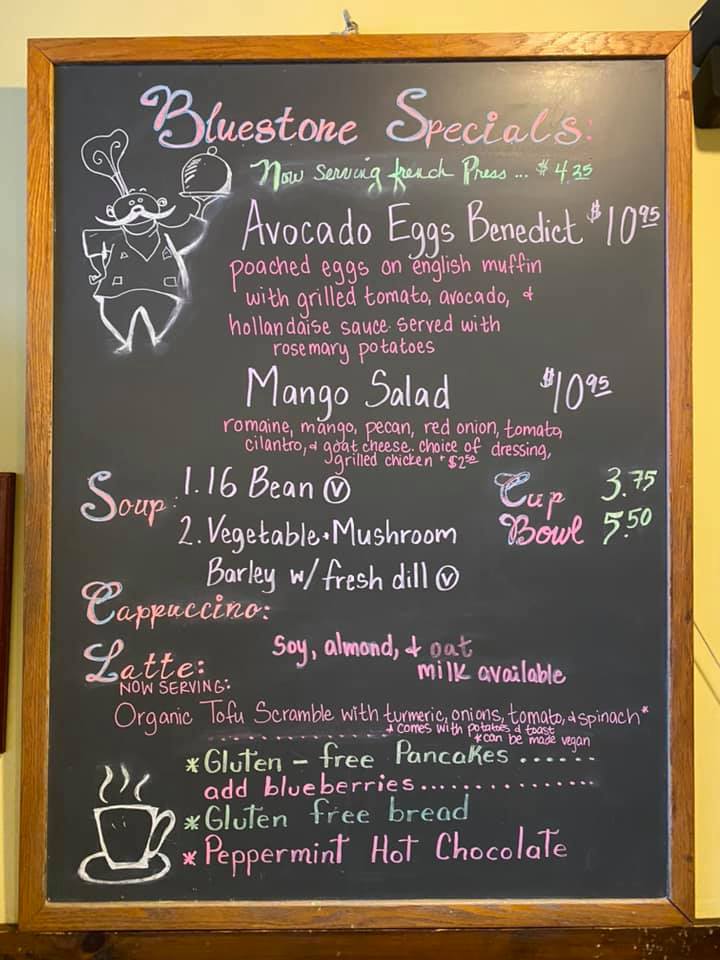 Bluestone Specials:
Now serving french Press ... $4.25
Avocado Eggs Benedict $10.95
poached eggs on english muffin
with grilled tomato, avocado, &
hollandaise sauce. served with
rosemary potatoes
Mango Salad $10.95
romaine, mango, pecan, red onion, tomato,
cilantro, & goat cheese. choice of dressing,
grilled chicken + $2.50
Soup: 1. 16 Bean Ⓥ Cup 3.75
2. Vegetable • Mushroom Bowl 5.50
Barley w/ fresh dill Ⓥ
Cappuccino:
Latte: Soy, almond, & oat
milk available
NOW SERVING:
Organic Tofu Scramble with turmeric, onions, tomato, & spinach*
* comes with potatoes & toast
*can be made vegan
*Gluten - free Pancakes ......
add blueberries...............
*Gluten free bread
*Peppermint Hot Chocolate